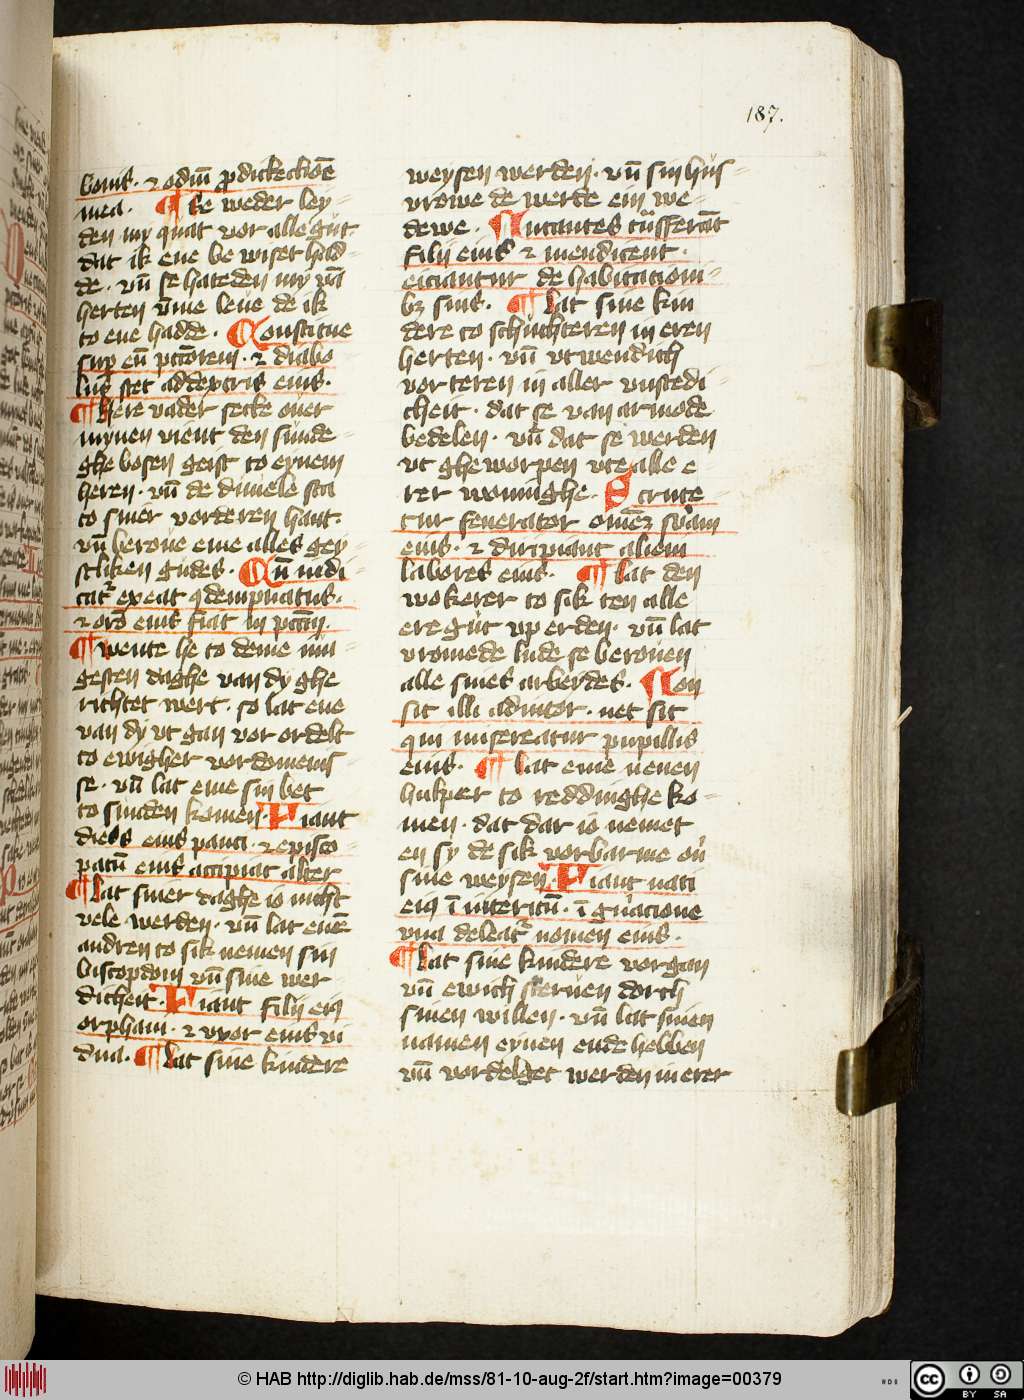 187.
bonis · et odiū p̱ dilectiōe
mea · Se weder ley-
den my quat vor alle gůt
dat ik ene be wiset had-
de · vn̄ se hateden my vā
herten vm̄e leue de ik
to ene hadde · Constitue
sup̱ eū pctōrem · et diabo
lus stet ad dextris eius ·
Here vader secke ouer
mynen vient den sunde-
ghe bosen geist to eynem
heren · vn̄ de duuele sta
to siner vorderen hant ·
vn̄ beroue ene alles gey
stliken gudes · Cūm iudi
catr̄ exeat ꝯdempnatus ·
et orō eius fiat in pctm̄ ·
wente he to deme iun
gesten daghe van dy ghe
richtet wert · so lat ene
van dy vt gan vor ordelt
to ewigher vordomenis
se · vn̄ lat eme sin bet
to sunden komen · Fiant
dies eius pauci · et episco-
patū eius accipiat alter
lat siner daghe io nicht
vele werden · vn̄ lat enē
andren to sik nemen sin
biscopdom vn̄ sine wer
dicheit · Fiant filij eiꝯ
orphani · et vxor eius vi
dua · lat sine kindere
weysen werden · vn̄ sin hus-
vrowe de werde ein we-
dewe · Nutantes trāsferāt
filij eius et mendicent ·
eiciantur de habitacioni-
bꝫ suis · lat sine kin
dere to schuchteren in eren
herten · vn̄ vtwendich
vor teren in aller vnstedi
cheit · dat se van armode
bedelen · vn̄ dat se werden
vt gheworpen vte alle e
rer woninghe · Scrute
tur fenerator omēꝫ sb̄am
eius · et diripiant alieni
labores eius · lat den
wokerer to sik ten alle
ere gůt vp erden · vn̄ lat
vromede lude se berouen
alle sines arbeydes · Non
sit illi adiutor · nec sit
qui misereatur pupillis
eius · lat eme nenen
hulper to reddinghe ko-
men · dat dar io nemet
en sy de sik vorbarme ou̓
sine weysen · Fiant nati
eiꝯ ī interitū · ī gn̓acione
vna deleatr̄ nomen eius ·
lat sine kindere vorgan
vn̄ ewich steruen dorch
sinen willen · vn̄ lat sinen
namen eynen ende hebben
vn̄ vordelget werden in erer
© HAB http://diglib.hab.de/mss/81-10-aug-2f/start.htm?image=00379
cc BY SA